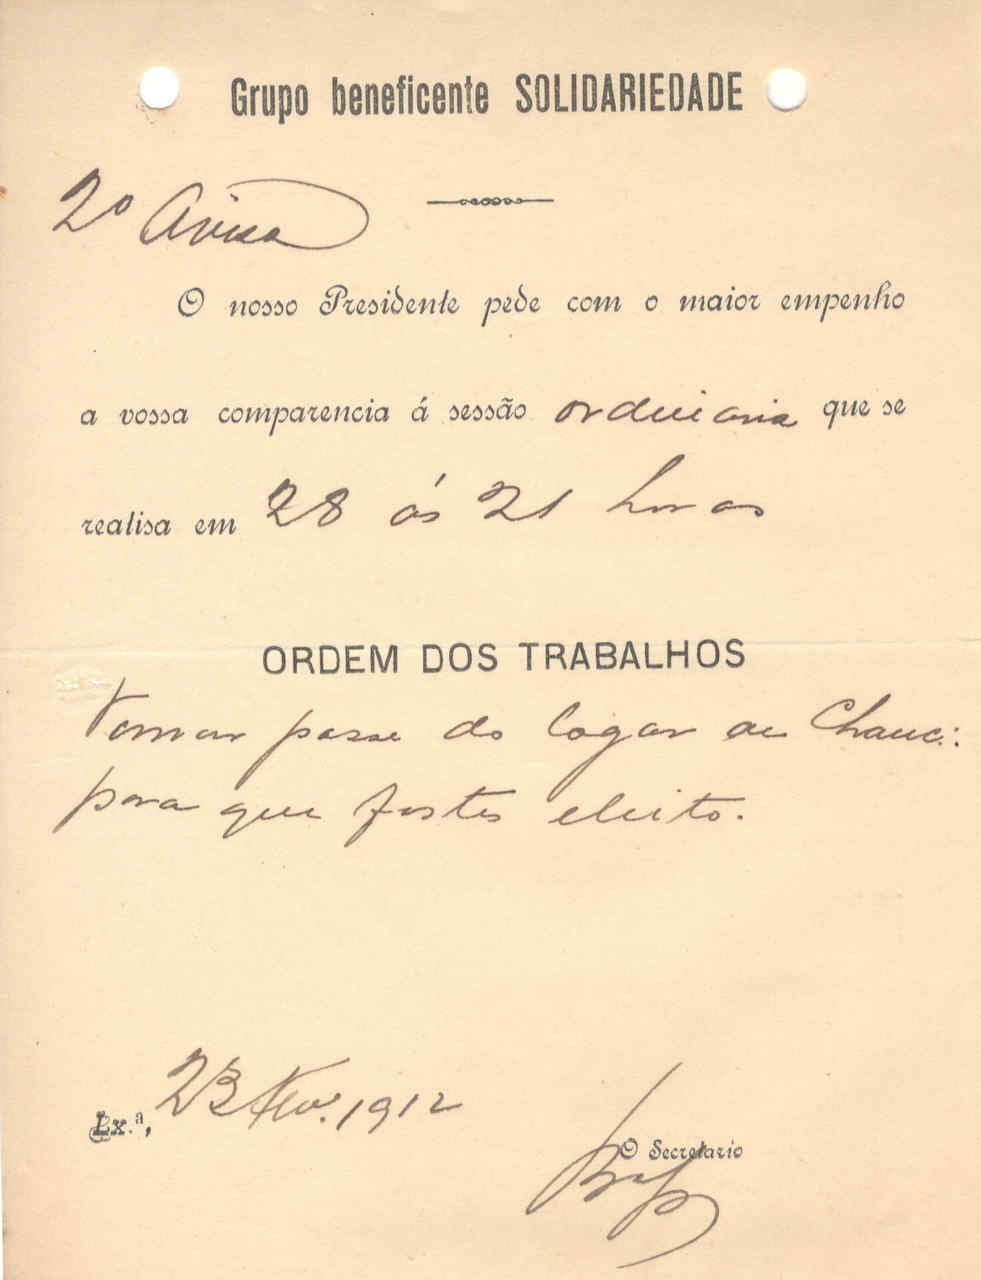 Grupo beneficente SOLIDARIEDADE
2º Aviso
O nosso Presidente pede com o maior empenho
a vossa comparencia á sessão ordinaria que se
realisa em 28 ás 21 horas
ORDEM DOS TRABALHOS
Tomar posse do logar de Chanc.:
para que fostes eleito.
Lx.ª, 23 Nov. 1912
O Secretario